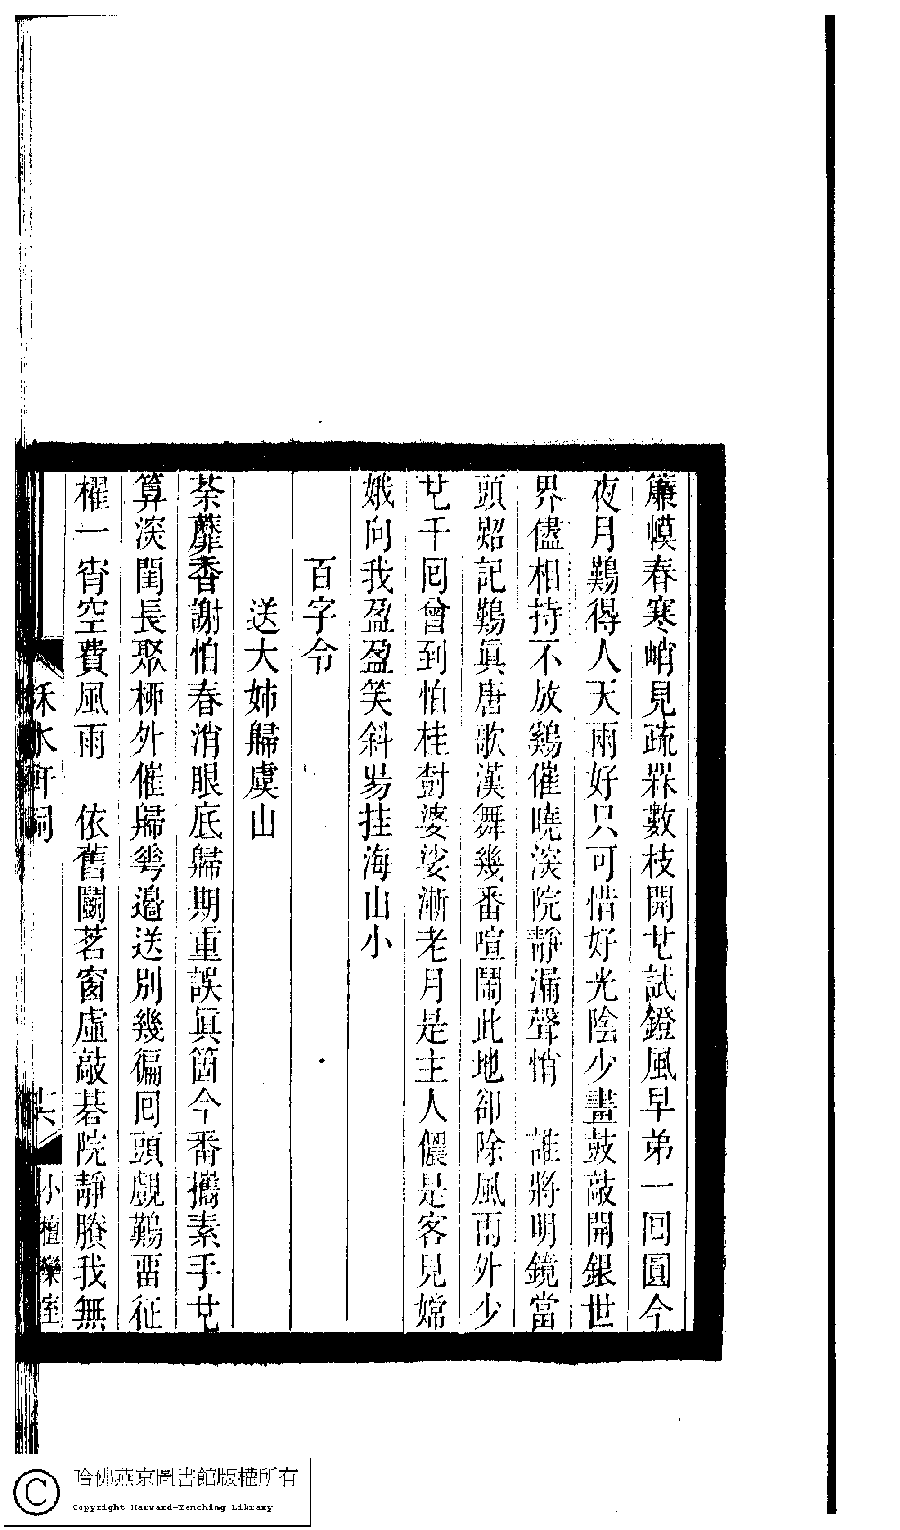 簾幙春寒峭見疏槑數枝開㐂試鐙風早弟一回圓今
夜月難得人天兩好只可惜好光陰少畫鼓敲開銀世
界儘相持不放鷄催曉湥院靜漏聲悄　誰將明鏡當
頭照記難眞唐歌漢舞幾番喧鬧此地卻除風雨外少
㐂千回曾到怕桂尌婆娑漸老月是主人儂是客見嫦
娥向我盈盈笑斜易挂海山小
百字令
送大姊歸虞山
荼蘼香謝怕春消眼底歸期重誤眞箇今番攜素手㐂
算湥閨長聚桺外催歸雩邉送別幾徧回頭覷難畱征
櫂一宵空費風雨　依舊鬬茗窗虛敲碁院靜賸我無
秝水軒詞
小檀欒室
哈佛燕京圖書館版權所有
Copyright Harvard-Yenching Library